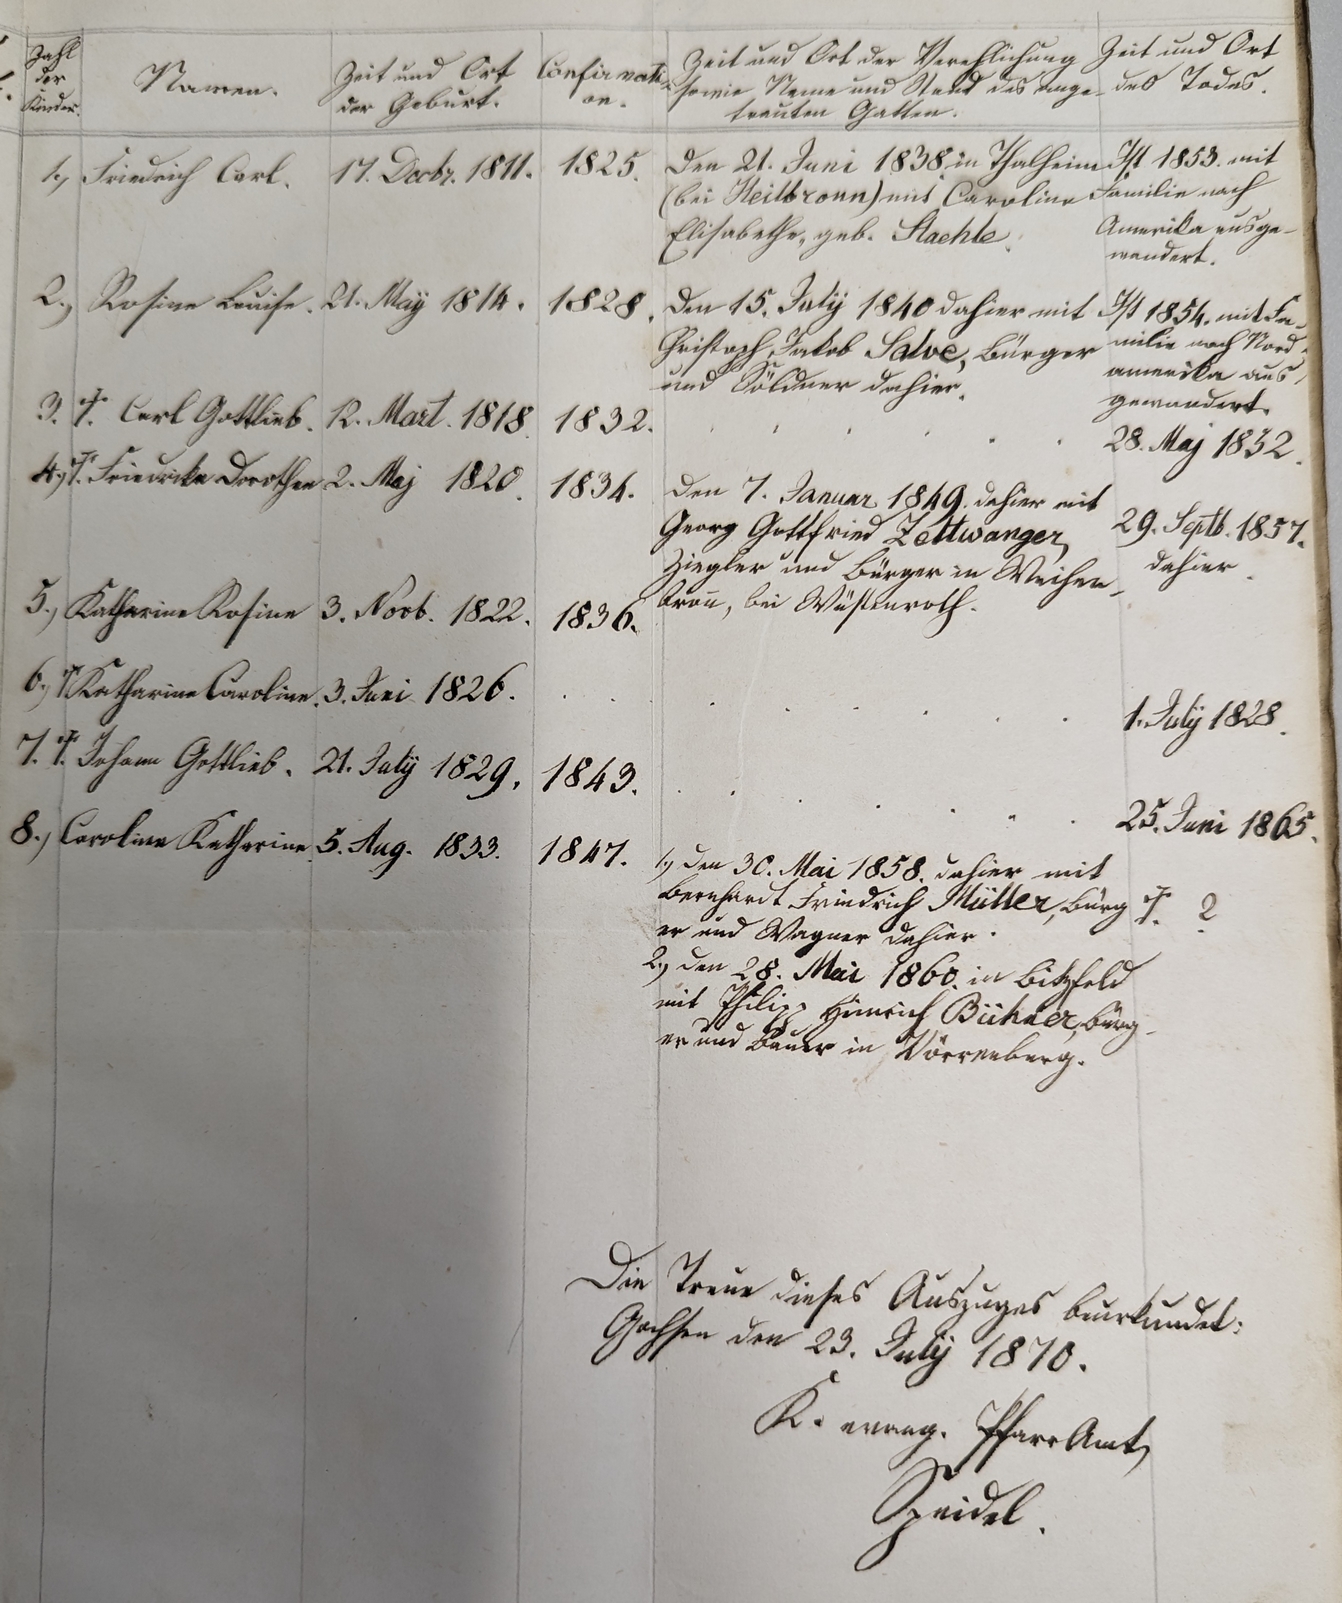 Zahl der Kinder. Namen. Zeit und Ort der Geburt. Confirmati-on. Zeit und Ort der Verehlichung sowie Name und Stand des ange-trauten Gatten. Zeit und Ort des Todes.
1.) Friedrich Carl. 17. Decbr. 1811. 1825. Den 21. Juni 1838. in Thalheim Ist 1853. mit
(bei Heilbronn) mit Caroline Familie nach
Elisabethe, geb. Stachle. Amerika ausge-
wandert.
2.) Rosine Louise. 21. Maÿ 1814. 1828. Den 15. Julÿ 1840 dahier mit Ist 1854. mit Fa-
Christoph Jakob Salve, Bürger milie nach Nord-
und Söldner dahier. amerika aus-
gewandert.
3. †. Carl Gottlieb. 12. Mart. 1818. 1832. 28. Maj 1852.
4.) †. Friedricke Dorothea 2. Maj 1820. 1834. Den 7. Januar 1849. dahier mit
Georg Gottfried Zettwanger, 29. Septb. 1857.
Ziegler und Bürger in Weihen- dahier.
bronn, bei Wüstenroth.
5.) Katharine Rosine 3. Novb. 1822. 1836.
6.) † Katharine Caroline. 3. Juni 1826. 1. Julÿ 1828.
7. †. Johann Gottlieb. 21. Julÿ 1829. 1843. 25. Juni 1865.
8.) Caroline Katharine. 5. Aug. 1833. 1847. 1.) den 30. Mai 1858. dahier mit
Bernhardt Friedrich Müller, Bürg †. ?
er und Wagner dahier.
2.) den 28. Mai 1860. in Bitzfeld
mit Philipp Heinrich Bühler, Bürg-
er und Bauer in Vörrenberg.
Die Treue dieses Auszuges beurkundet:
Gochsen den 23. Julÿ 1870.
K. evang. PfarrAmt,
Speidel.